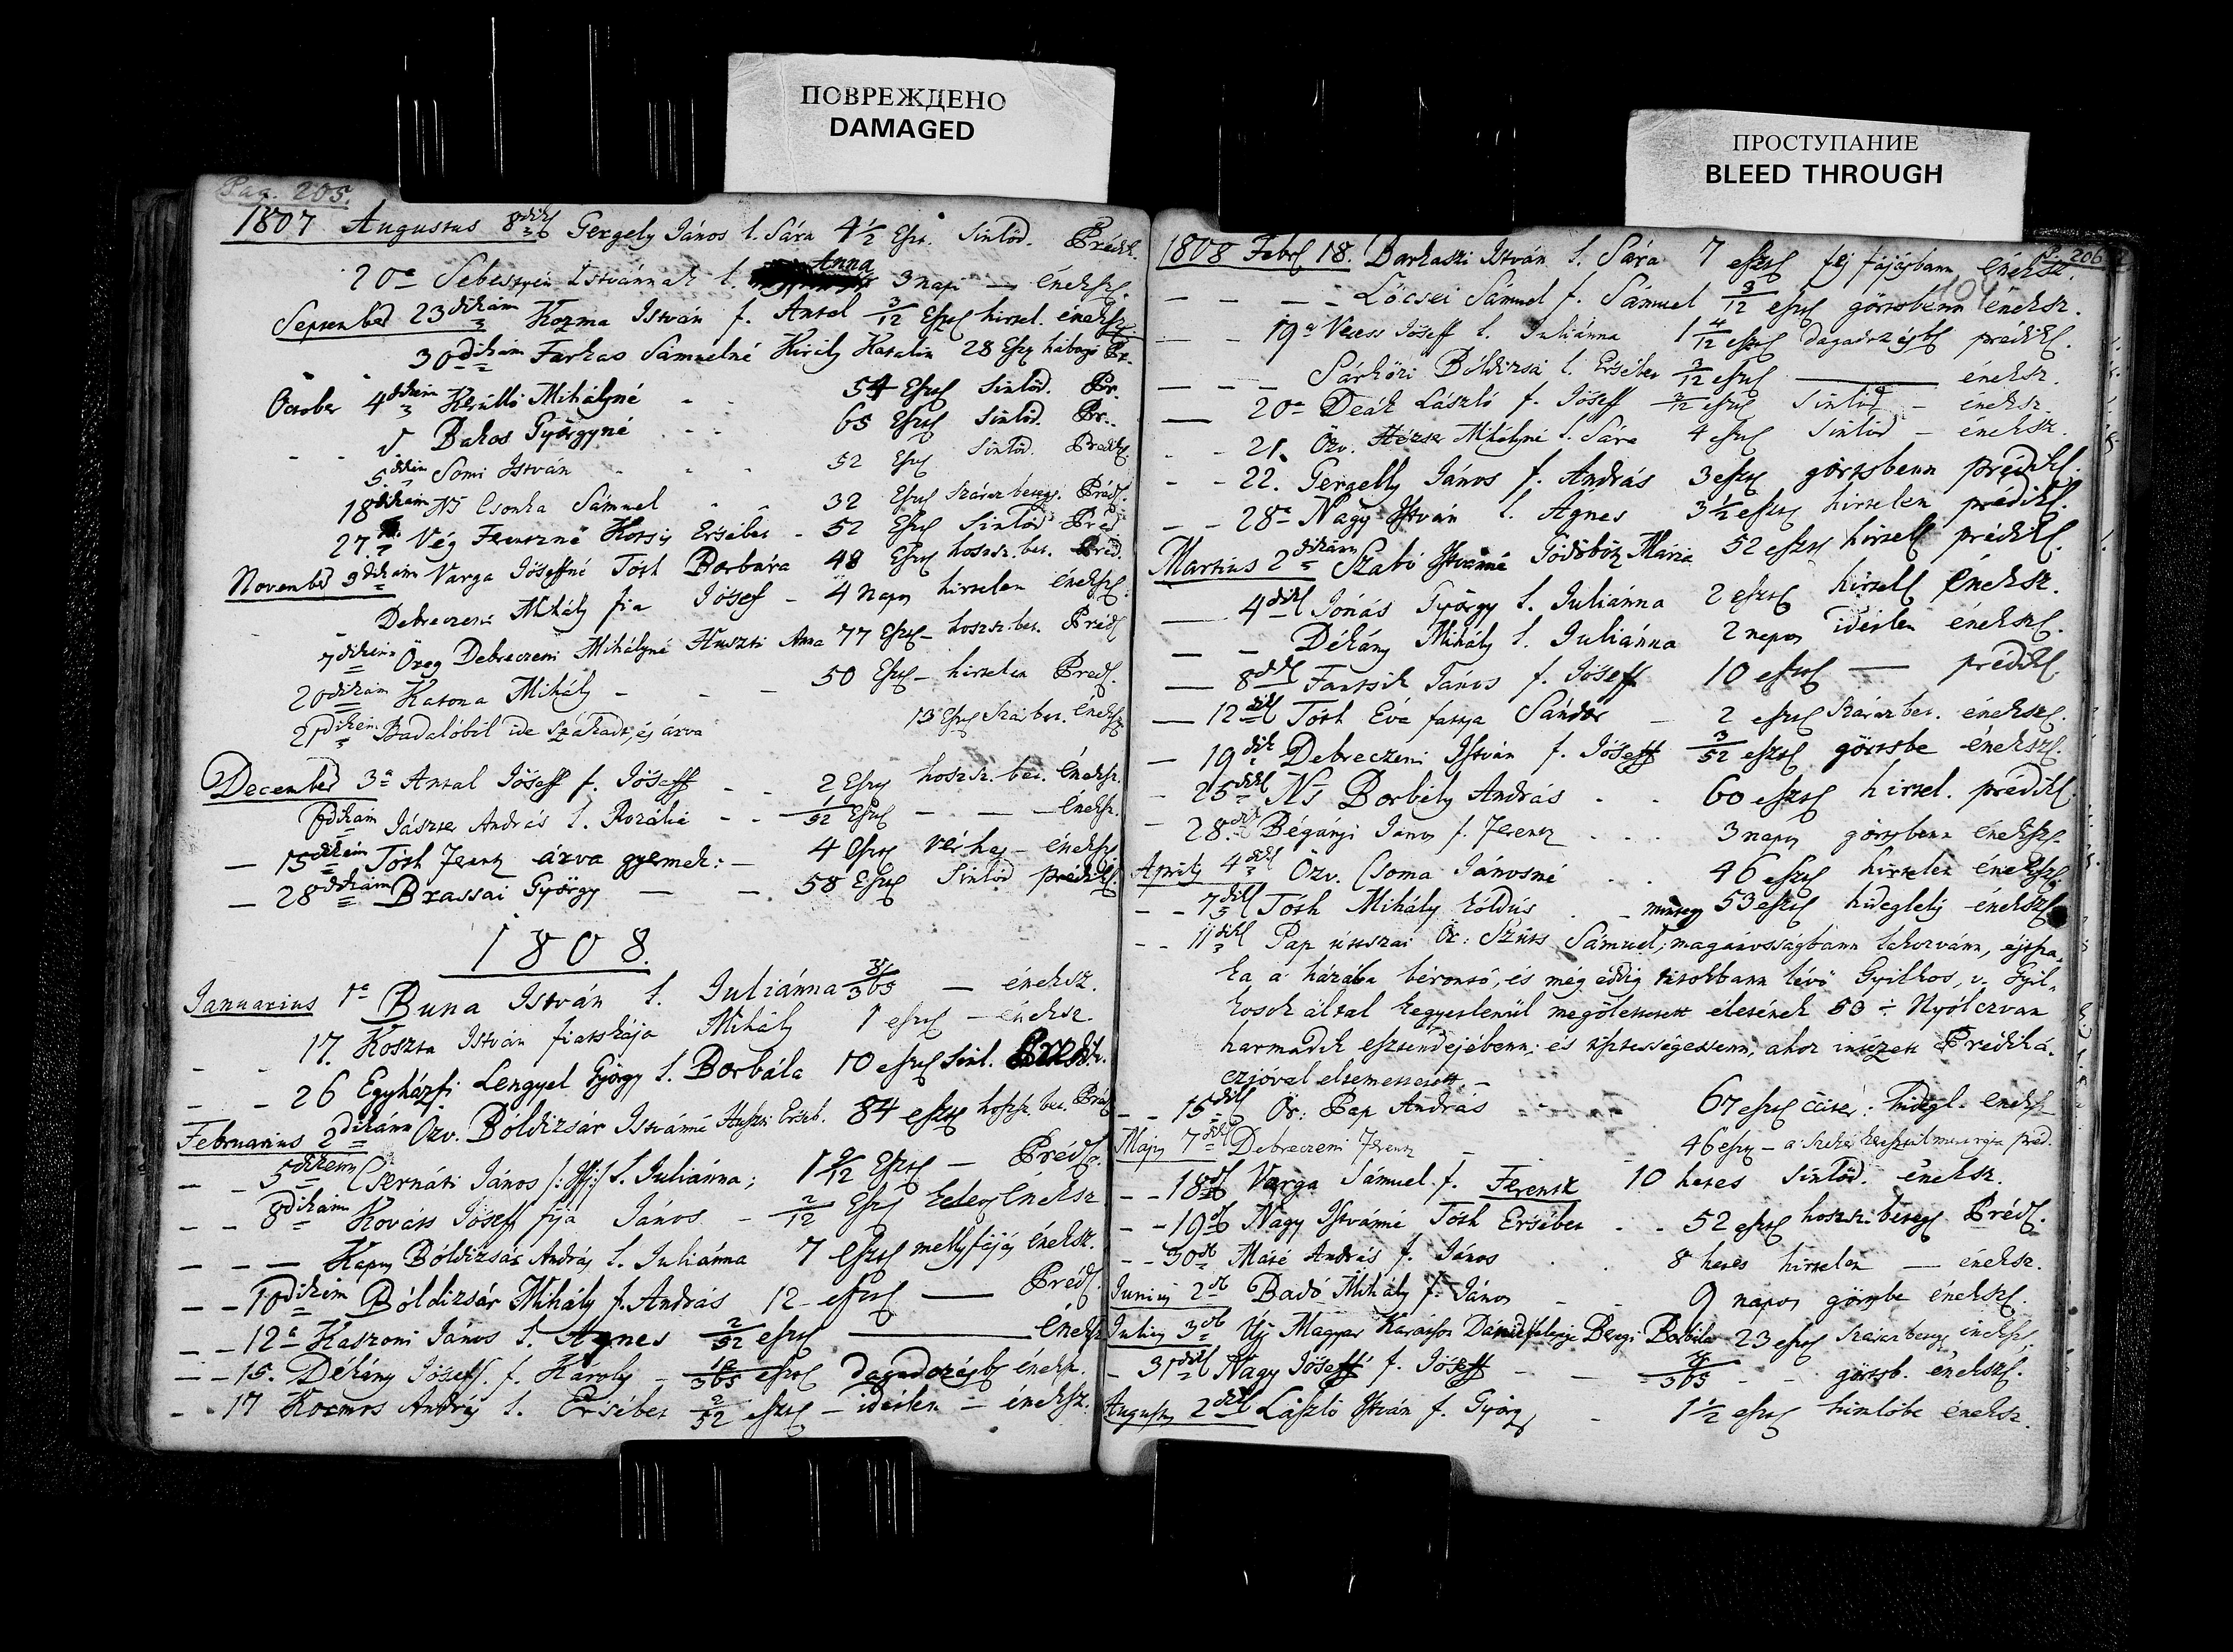 ПОВРЕЖДЕНО
DAMAGED
ПРОСТУПАНИЕ
BLEED THROUGH
Pag. 205.
1807 Augustus 8dik Gergely János l. Sára 4 1/2 Eszt. Sinlőd. Prédik.
20a Sebestyén Istvánnak l. Anna 3 napi — éneksz.
September 23dikám Kozma István f. Antal 3/12 Eszt hirtel. éneksz.
30dikám Farkas Sámuelné Király Katalin 28 Esz Pr.
October 4dikám Mihályné - - 54 Eszt Sinlőd. Pr.
- - Bakos Györgyné - - 65 Eszt Sinlőd. Pr.
5dikén Somi István - - - 52 Eszt Sinlőd. Prédik
18dikám Ns Csonka Sámuel - - 32 Eszt Száraz beteg. Préd.
27. Vég Ferentzné Kotsis Ersébet - 52 Eszt Sinlőd Préd
November 3dikám Varga Jósefné Tóth Borbára 48 Eszt hossz. bet. Préd.
Debreczeni Mihály fia Jósef - 4 napos hirtelen éneksz.
7dikénn Öreg Debreczeni Mihályné Huszti Anna 77 Eszt - hossz. bet. Préd
20dikám Katona Mihály - - - 50 Eszt - hirtelen Préd.
21dikén Badalóból ide Szakadt, és árva 13 Eszt Szár bet. éneksz
December 3a Antal Jóseff f. Jóseff - - 2 Esz hossz. bet. éneksz.
6dikám Jászter András l. Rozália - - 1/52 Eszt - - — éneksz.
— 15dikén Tóth Ferentz árva gyermek: — 4 Eszt vérhas - éneksz
— 28dikám Brassai György — — 58 Eszt Sinlőd prédik
1808.
Januarius 1a Buna István l. Juliánna /365 — éneksz.
- - 17. Koszta István fiatskája Mihály 1 eszt - éneksz.
- - 26 Egyházfi Lengyel György l. Borbála 10 eszt sinl.
Februarius 2dikánn Özv. Bóldizsár Istvánné Huszti Erséb. 84 eszt hossz. bet. Préd
- - 5dikénn Csernáti János l. Juliánna; 1 /12 Eszt — Prédik.
- - 8dikám Kováts Jóseff fija János - 2/12 Esz éneksz
- - — Bóldizsár András l. Juliánna 7 Eszt melly fájás éneksz.
- - 10dikém Bóldizsár Mihály f. András 12 - eszt — Préd.
- - 12a Kaszoni János l. Agnes 2/52 eszt — éneksz
- - 15. Dékány Jóseff. f. Károly - /365 eszt dagadozásb éneksz.
- - 17 András l. Ersébet 2/52 eszt - idétlen - éneksz.
P. 206
1808 Febr 18. Barkaszi István l. Sára 7 eszt fej fájásbann éneksz.
- - - - Lőcsei Sámuel f. Sámuel /12 eszt görtsbenn éneksz.
- - 19a Veress Jóseff l. Juliánna 1 4/12 eszt dagadozásb prédik.
- - - Sárközi Bóldizsá l. Ersébet 3/12 eszt — éneksz.
— 20a Deák László f. Jóseff /12 eszt Sinlőd - éneksz.
- - 21. Özv. Mihályné l. Sára 4 eszt Sinlőd - éneksz.
- - 22. Gergelly János f. András 3 eszt görtsbenn prédik.
- - 28a Nagy István l. Agnes 3 1/2 eszt hirtelen prédik.
Martius 2dikánn Szabó Istvánné Mária 52 eszt hirtel prédik.
— 4dik Jónás György l. Juliánna 2 eszt hirtel éneksz.
— — Dékány Mihály l. Juliánna 2 napos idétlen éneksz.
— 8dik Fantsik János f. Jóseff 10 eszt — prédik
— 12dik Tóth Éva fattya Sándor - 2 eszt Száraz bet. éneksz.
— 19dik Debreczeni István f. Jóseff 3/52 eszt görtsbe éneksz.
- 25dik Ns Borbély András - - 60 eszt hirtel. prédik
- 28. Bégányi János f. Ferentz - - - 3 napos görtsbenn éneksz
Aprilis 4dik Özv. Csoma Jánosné - - 46 eszt hirtelen éneksz
- - 7dik Tóth Mihály kóldús - - mintegy 53 eszt hideglelés éneksz
- - 11dik Pap úttszai Ör: Szüts Sámuel, magánosságbann lakozvánn, éjtsza-
ka a' házába bérontó, és még eddig titokbann lévő Gyilkos, v. Gyil-
kosok által kegyetlenül megölettetett életének 53 ÷ Nyolczvan
harmadik esztendejébenn; és tisztességessenn, a Prédiká-
czióval eltemettetett. -
- - 15dik Ör: Pap András - 67 eszt hidegl. éneksz
Majus 7dik Debreczeni Ferentz - - 46 esz - a Szekér préd.
- - 18dik Varga Sámuel f. Ferentz 10 hetes Sinlőd. éneksz.
- - 19dik Nagy Istvánné Tóth Ersébet - - 52 eszt hossz. beteg Préd.
- - 30dik Máté András f. János - - 8 hetes hirtelen — éneksz.
Junius 2dik Badó Mihály f. János - - 9 napos görtsbe éneksz.
Julius 3dik Új Magyar Karátson Dániel felesége Beregi Borbála 23 eszt Száraz beteg éneksz.
- 31dik Nagy Jóseff f. Jóseff - - /365 - - görtsb. éneksz.
Augustus 2dik László István f. György - 1 1/2 eszt himlőbe éneksz.